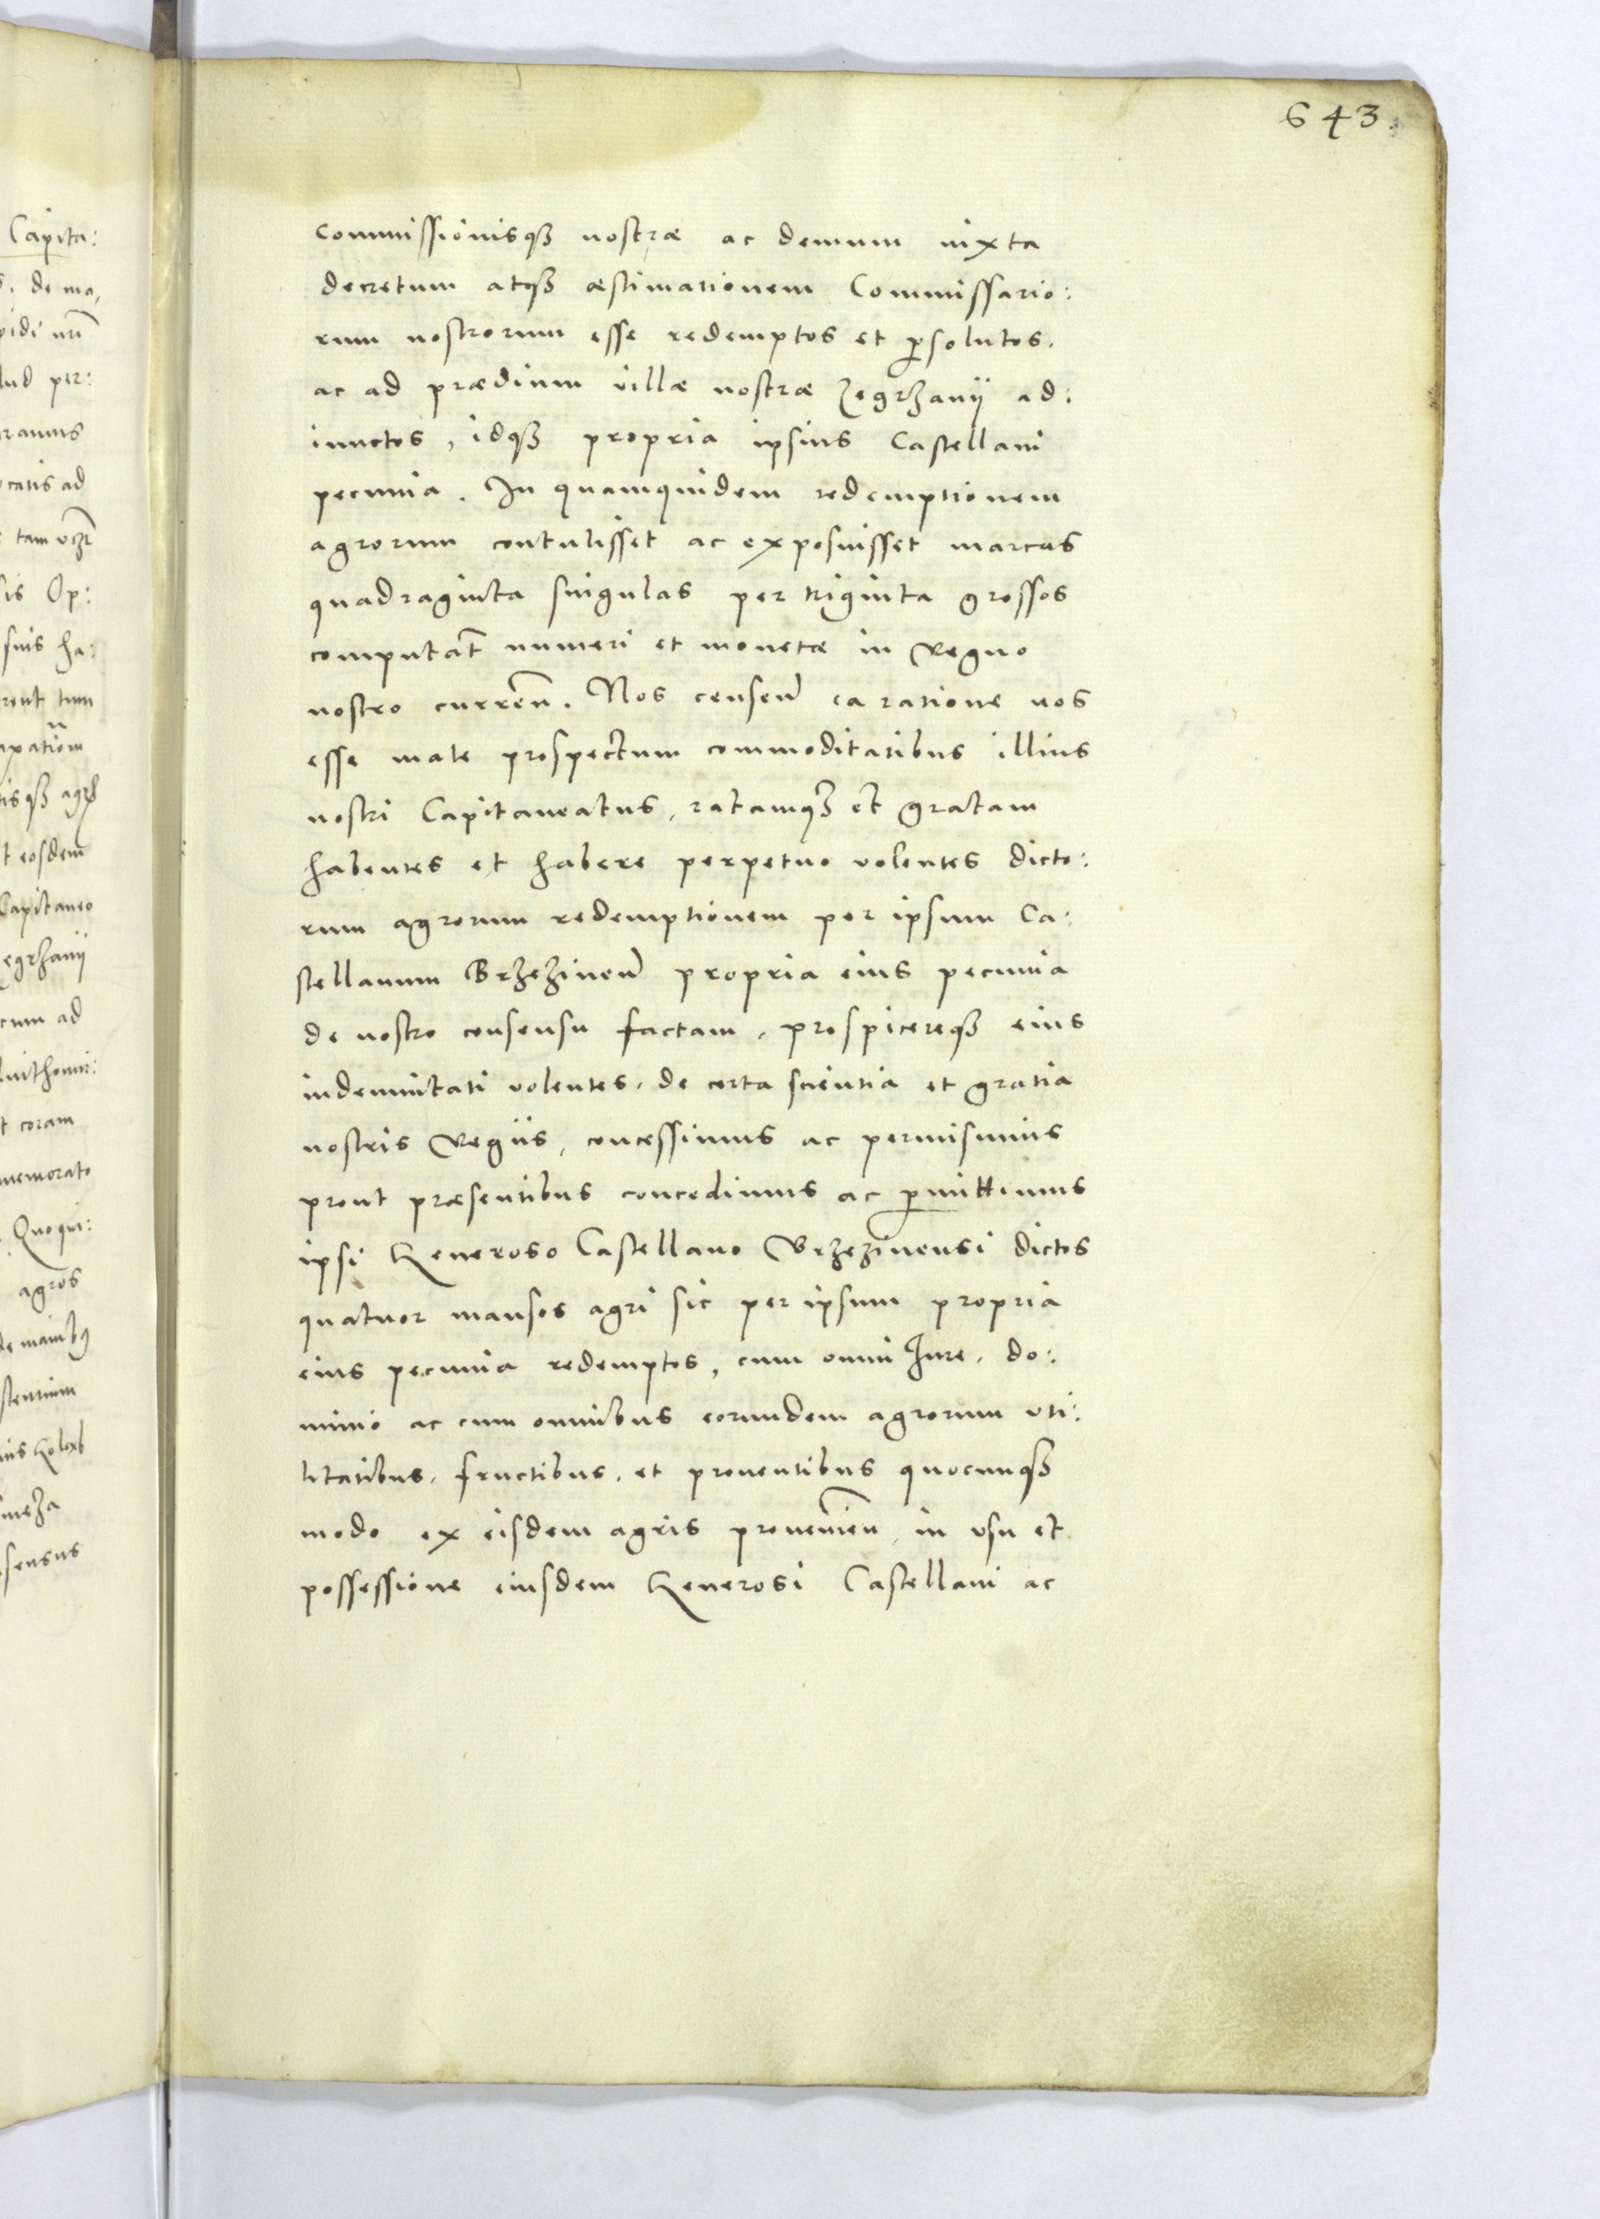 643.
commissionisqȝ nostræ ac demum iuxta
decretum atqȝ æstimationem Commissario:
rum nostrorum esse redemptos et ꝑsolutos.
ac ad prædium villæ nostræ Zegrzanÿ ad:
iunctos, idqȝ propria ipsius Castellani
pecunia. In quamquidem redemptionem
agrorum contulisset ac exposuisset marcas
quadraginta singulas per triginta grossos
computat̄ numeri et monetæ in Regno
nostro curren̄. Nos censen̄ ea ratione nos
esse male prospectum commoditatibus illius
nostri Capitaneatus, ratamqȝ et gratam
habentes et habere perpetuo volentes dicto:
rum agrorum redemptionem per ipsum Ca:
stellanum Brzezinen̄ propria eius pecunia
de nostro consensu factam, prospicereqȝ eius
indemnitati volentes, de certa scientia et gratia
nostris Regiis, concessimus ac permisimus
prout præsentibus concedimus ac ꝑmittimus
ipsi Generoso Castellano Brzezinensi dictos
quatuor mansos agri sic per ipsum propria
eius pecunia redemptos, cum omni Iure, do:
minio ac cum omnibus eorundem agrorum uti:
litatibus, fructibus, et prouentibus quocunqȝ
modo ex eisdem agris prouenien̄, in vsu et
possessione eiusdem Generosi Castellani ac
Capita:
de ma,
per:
catis ad
Op:
suis ha:
tum
eosdem
Capitaneo
cum ad
coram
Quoqui:
agros